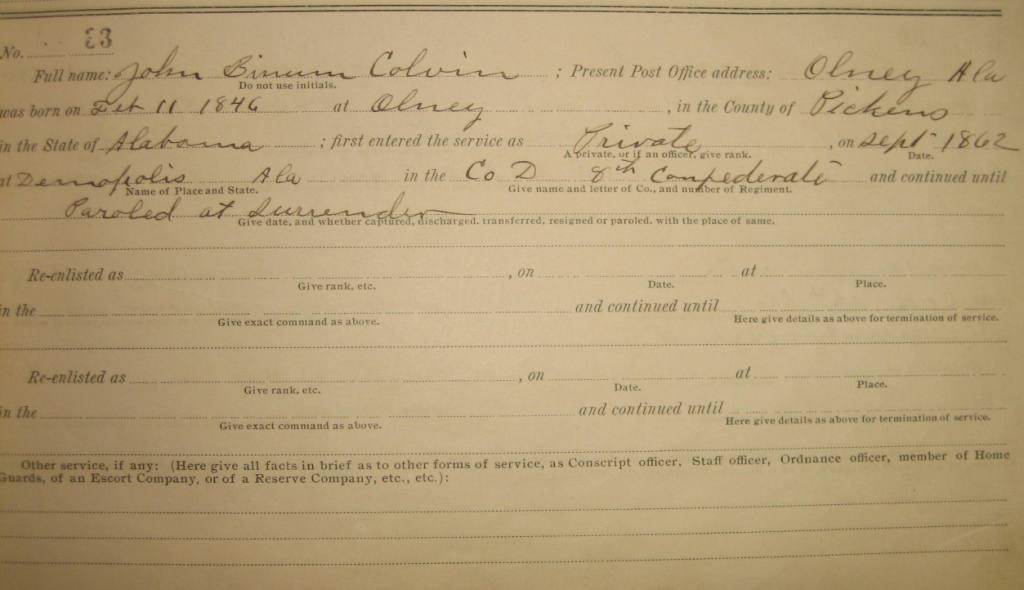 No. 33
Full name: John Binum Colvin ; Present Post Office address: Olney Ala
Do not use initials.
was born on Feb 11 1846 at Olney , in the County of Pickens
in the State of Alabama ; first entered the service as Private , on Sept 1862
A private, or if an officer, give rank. Date.
at Demopolis Ala in the Co D 8th Confederate and continued until
Name of Place and State. Give name and letter of Co., and number of Regiment.
Paroled at Surrender
Give date, and whether captured, discharged, transferred, resigned or paroled, with the place of same.
Re-enlisted as , on at
Give rank, etc. Date. Place.
in the and continued until
Give exact command as above. Here give details as above for termination of service.
Re-enlisted as , on at
Give rank, etc. Date. Place.
in the and continued until
Give exact command as above. Here give details as above for termination of service.
Other service, if any: (Here give all facts in brief as to other forms of service, as Conscript officer, Staff officer, Ordnance officer, member of Home
Guards, of an Escort Company, or of a Reserve Company, etc., etc.):